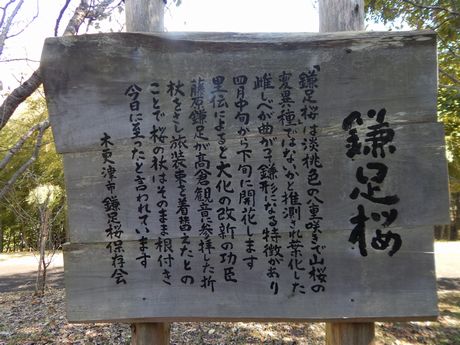 鎌足桜
「鎌足桜」は淡桃色の八重咲きで山桜の
変異種ではないかと推測され葉化した
雌しべが曲がって鎌形になる特徴があり
四月中旬から下旬に開花します
里伝によると大化の改新の功臣
藤原鎌足が高倉観音に参拝した折
杖をさし旅装束を着替えたとの
ことで桜の杖はそのまま根付き
今日に至ったと言われています
木更津市鎌足桜保存会